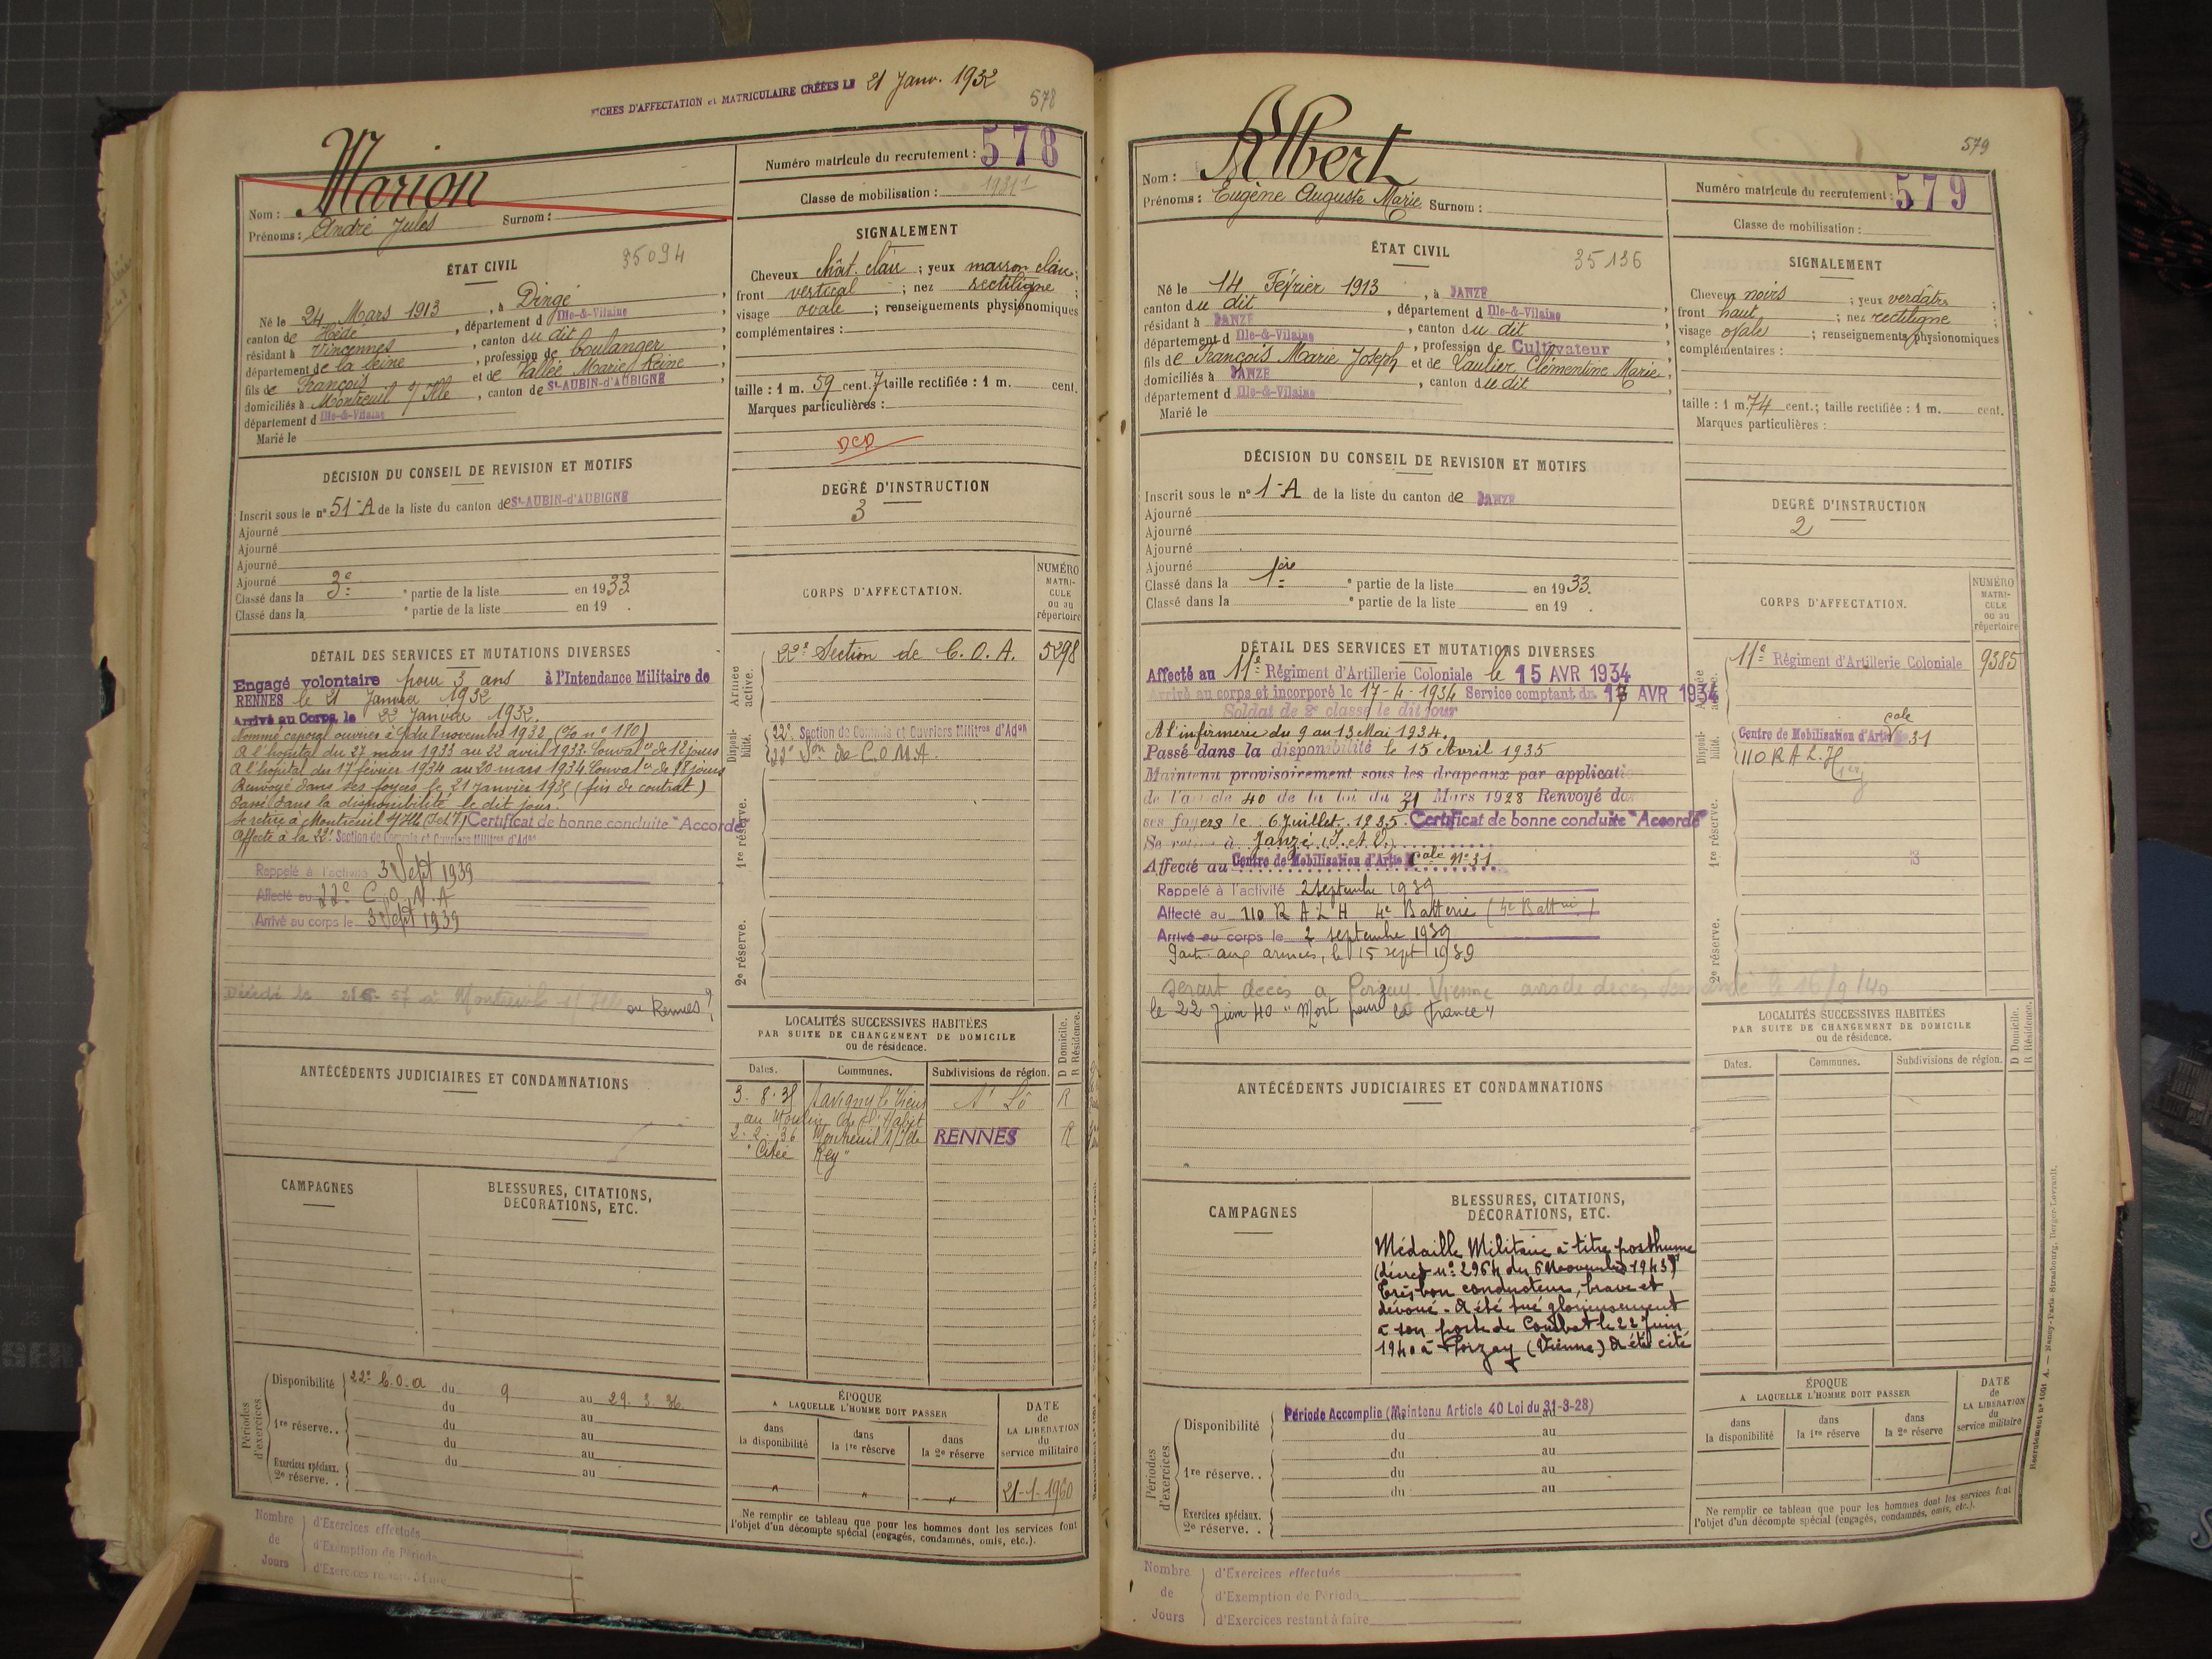 FICHES D'AFFECTATION et MATRICULAIRE CRÉÉES LE 21 Janv. 1932
578
Nom : Marion
Prénoms : André Jules Surnom :
Numéro matricule du recrutement : 578
Classe de mobilisation :
ÉTAT CIVIL
35094
Né le 24 Mars 1913, à Dingé,
canton de Hédé, département d Ille-&-Vilaine,
résidant à Vincennes, canton du dit,
département de la Seine, profession de boulanger,
fils de François et de Vallée Marie Reine,
domiciliés à Montreuil s/ Ille, canton de St-AUBIN-d'AUBIGNE,
département d Ille-&-Vilaine
Marié le
SIGNALEMENT
Cheveux chât. clair ; yeux marron clair ;
front vertical ; nez rectiligne ;
visage ovale ; renseignements physionomiques
complémentaires :
taille : 1 m. 59 cent. 7 taille rectifiée : 1 m. cent.
Marques particulières :
DCD
DÉCISION DU CONSEIL DE REVISION ET MOTIFS
Inscrit sous le n° 51-A de la liste du canton de St-AUBIN-d'AUBIGNE
Ajourné
Ajourné
Ajourné
Ajourné
Classé dans la 3e ° partie de la liste en 1933.
Classé dans la ° partie de la liste en 19 .
DEGRÉ D'INSTRUCTION
3
CORPS D'AFFECTATION.
NUMÉRO MATRI-CULE ou au répertoire
Armée active.
22e Section de C. O. A. 5298
Disponi-bilité.
22e Section de Commis et Ouvriers Militres d'Adon
22e Son de C.O.M.A.
1re réserve.
2e réserve.
DÉTAIL DES SERVICES ET MUTATIONS DIVERSES
Engagé volontaire pour 3 ans à l'Intendance Militaire de
RENNES le 21 Janvier 1932
Arrivé au Corps le 22 Janvier 1932.
Nommé caporal ouvrier à c/ du 1 novembre 1932 (O n° 170)
A l'hôpital du 27 mars 1933 au 22 avril 1933. Convalce de 12 jours
A l'hôpital du 17 février 1934 au 20 mars 1934 Convalce de 18 jours
Renvoyé dans ses foyers le 21 Janvier 1935 (fin de contrat)
Passé dans la disponibilité le dit jour.
Se retire à Montreuil s/Ille (I et V) Certificat de bonne conduite "Accordé"
Affecté à la 22e Section de Commis et Ouvriers Militres d'Adon
Rappelé à l'activité 3 Sept 1939
Affecté au 22e C.O.M.A
Arrivé au corps le 3 Sept 1939
Décédé le 57 à Montreuil s/ Ille ou Rennes?
LOCALITÉS SUCCESSIVES HABITÉES
PAR SUITE DE CHANGEMENT DE DOMICILE
ou de résidence.
D Domicile. R Résidence.
Dates. Communes. Subdivisions de région.
3. 8. 35 Savigny le Vieux St Lô R
au Moulin
2. 2. 36 Montreuil s/Ille RENNES R
"Cité Rey"
ANTÉCÉDENTS JUDICIAIRES ET CONDAMNATIONS
CAMPAGNES
BLESSURES, CITATIONS,
DÉCORATIONS, ETC.
Périodes d'exercices
Disponibilité 22e C.O.A du 9 au 29. 3. 36
du au
1re réserve. . du au
du au
Exercices spéciaux. du au
2e réserve. . au
ÉPOQUE
A LAQUELLE L'HOMME DOIT PASSER
dans la disponibilité
dans la 1re réserve
dans la 2e réserve
DATE de LA LIBÉRATION du service militaire
" " " 21-1-1960
Ne remplir ce tableau que pour les hommes dont les services font
l'objet d'un décompte spécial (engagés, condamnés, omis, etc.).
Nombre de Jours
d'Exercices effectués
d'Exemption de Période
d'Exercices restant à faire
579
Nom : Albert
Prénoms : Eugène Auguste Marie Surnom :
Numéro matricule du recrutement : 579
Classe de mobilisation :
ÉTAT CIVIL
35136
Né le 14 Février 1913, à JANZÉ
canton du dit, département d Ille-&-Vilaine,
résidant à JANZÉ, canton du dit,
département d Ille-&-Vilaine, profession de Cultivateur
fils de François Marie Joseph et de Laulier Clémentine Marie,
domiciliés à JANZÉ, canton du dit,
département d Ille-&-Vilaine
Marié le
SIGNALEMENT
Cheveux noirs ; yeux verdâtres ;
front haut ; nez rectiligne ;
visage ovale ; renseignements physionomiques
complémentaires :
taille : 1 m. 74 cent.; taille rectifiée : 1 m. cent.
Marques particulières :
DÉCISION DU CONSEIL DE REVISION ET MOTIFS
Inscrit sous le n° 1-A de la liste du canton de JANZÉ
Ajourné
Ajourné
Ajourné
Ajourné
Classé dans la 1ère ° partie de la liste en 1933.
Classé dans la ° partie de la liste en 19 .
DEGRÉ D'INSTRUCTION
2
CORPS D'AFFECTATION.
NUMÉRO MATRI-CULE ou au répertoire
11e Régiment d'Artillerie Coloniale 9385
Disponi-bilité.
Centre de Mobilisation d'Artie Cale N° 31
110 R A L. H
1re réserve.
2e réserve.
DÉTAIL DES SERVICES ET MUTATIONS DIVERSES
Affecté au 11e Régiment d'Artillerie Coloniale le 15 AVR 1934
Arrivé au corps et incorporé le 17-4-1934 Service comptant du 17 AVR 1934
Soldat de 2e classe le dit jour
A l'infirmerie du 9 au 13 Mai 1934.
Passé dans la disponibilité le 15 Avril 1935
Maintenu provisoirement sous les drapeaux par applicati
de l'article 40 de la loi du 31 Mars 1928 Renvoyé da
ses foyers le 6 Juillet 1935. Certificat de bonne conduite "Accordé"
Se retire à Janzé (I. & V.)
Affecté au Centre de Mobilisation d'Artie Cale N° 31
Rappelé à l'activité 2 septembre 1939
Affecté au 110 R A L H 4e Batterie
Arrivé au corps le 2 septembre 1939
Parti aux armées, le 15 sept 1939
Serait décédé à Porzay-Vienne avis de décès demandé le 16/9/40
le 22 Juin 40 "Mort pour la France"
LOCALITÉS SUCCESSIVES HABITÉES
PAR SUITE DE CHANGEMENT DE DOMICILE
ou de résidence.
D Domicile. R Résidence.
Dates. Communes. Subdivisions de région.
ANTÉCÉDENTS JUDICIAIRES ET CONDAMNATIONS
CAMPAGNES
BLESSURES, CITATIONS,
DÉCORATIONS, ETC.
Médaille Militaire à titre posthume
(décret n° 2964 du 6 Novembre 1943)
Très bon conducteur, brave et
dévoué - A été tué glorieusement
à son poste de Combat le 22 Juin
1940 à Porzay (Vienne) A été cité
Périodes d'exercices.
Disponibilité Période Accomplie (Maintenu Article 40 Loi du 31-3-28)
du au
du au
1re réserve. . du au
du au
Exercices spéciaux.
2e réserve. .
ÉPOQUE
A LAQUELLE L'HOMME DOIT PASSER
dans la disponibilité
dans la 1re réserve
dans la 2e réserve
DATE de LA LIBÉRATION du service militaire
Ne remplir ce tableau que pour les hommes dont les services font
l'objet d'un décompte spécial (engagés, condamnés, omis, etc.).
Nombre de Jours
d'Exercices effectués
d'Exemption de Période
d'Exercices restant à faire
Nancy-Paris-Strasbourg, Berger-Levrault.